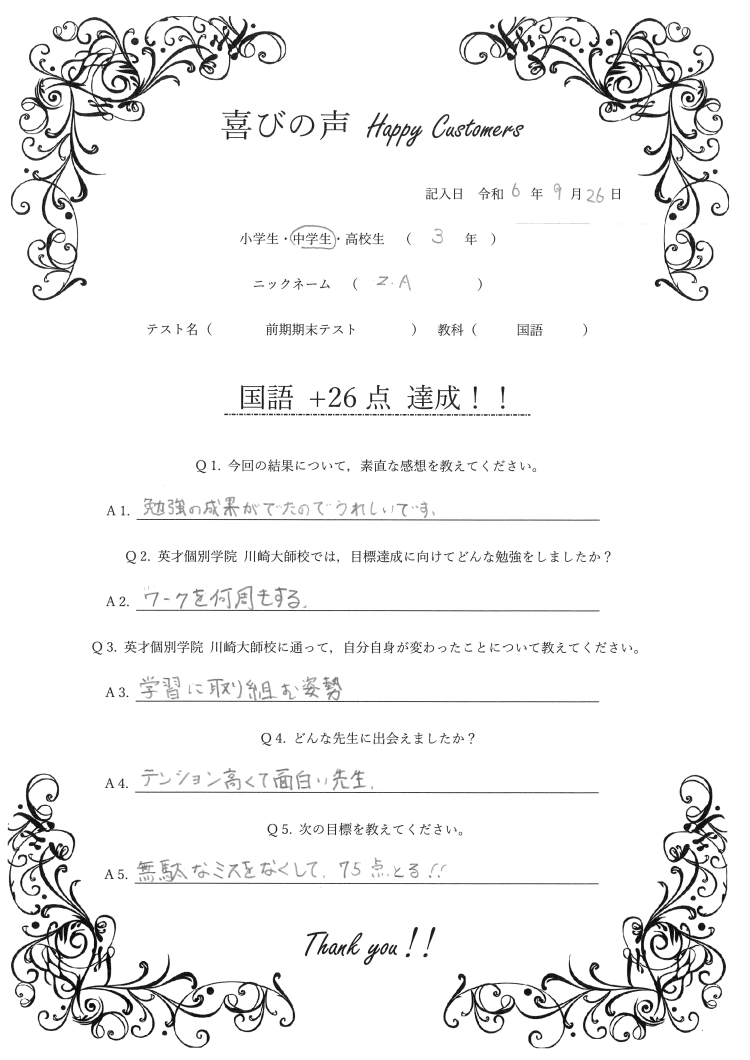 喜びの声 Happy Customers
記入日 令和 6 年 9 月 26 日
小学生・中学生・高校生 （ 3 年 ）
ニックネーム （ Z.A ）
テスト名（ 前期期末テスト ） 教科（ 国語 ）
国語 +26 点 達成！！
Q 1. 今回の結果について，素直な感想を教えてください。
A 1. 勉強の成果がでたのでうれしいです。
Q 2. 英才個別学院 川崎大師校では，目標達成に向けてどんな勉強をしましたか？
A 2. ワークを何周もする.
Q 3. 英才個別学院 川崎大師校に通って，自分自身が変わったことについて教えてください。
A 3. 学習に取り組む姿勢
Q 4. どんな先生に出会えましたか？
A 4. テンション高くて面白い先生.
Q 5. 次の目標を教えてください。
A 5. 無駄なミスをなくして. 75点とる!!
Thank you！！